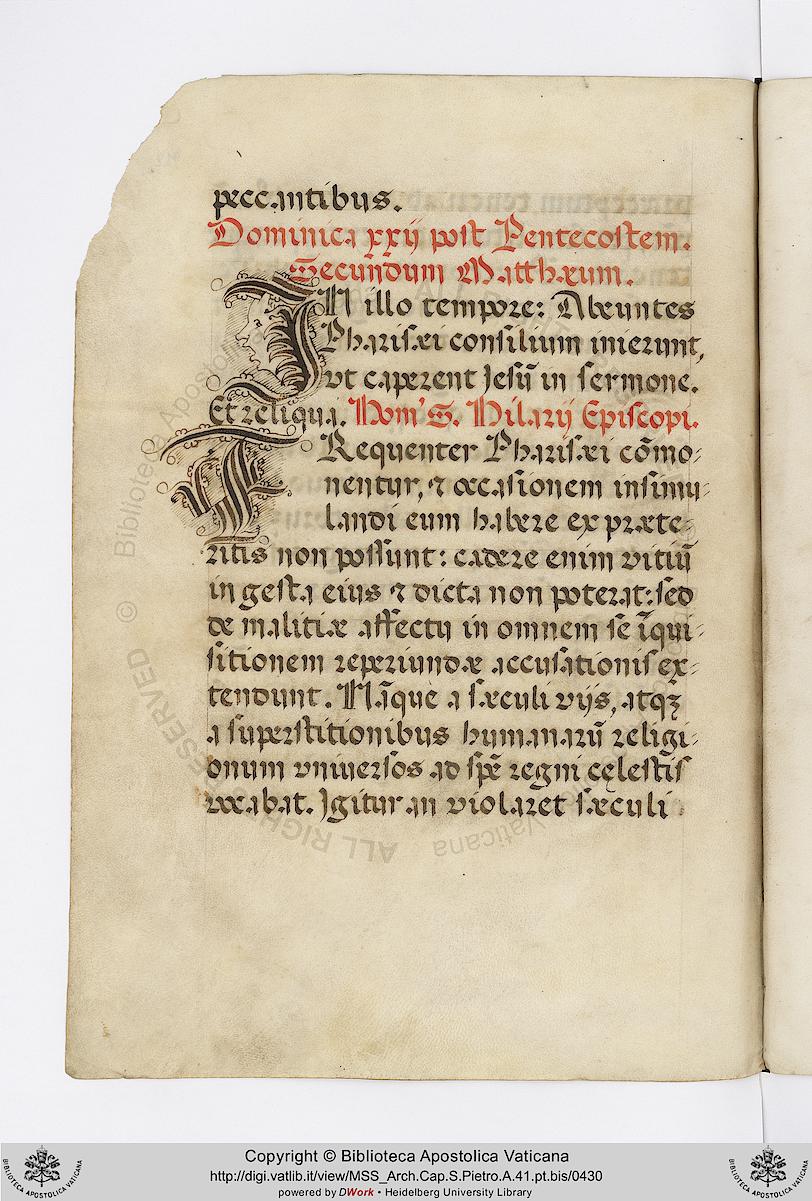 peccantibus.
Dominica xxij post Pentecostem.
Secundum Matthæum.
IN illo tempore: Abeuntes
Pharisæi consilium inierunt,
vt caperent Jesū in sermone.
Et reliqua. Hom' S. Hilarij Episcopi.
FRequenter Pharisæi cōmo-
nentur, & occasionem insimu-
landi eum habere ex præte-
ritis non possunt: cadere enim vitiū
in gesta eius & dicta non poterat: sed
de malitiæ affectu in omnem se īqui-
sitionem reperiundæ accusationis ex-
tendunt. Nāque a sæculi vijs, atqꝫ
a superstitionibus humanarū religi-
onum vniuersos ad spē regni cęlestis
vocabat. Igitur an violaret sæculi
Copyright © Biblioteca Apostolica Vaticana
http://digi.vatlib.it/view/MSS_Arch.Cap.S.Pietro.A.41.pt.bis/0430
powered by DWork • Heidelberg University Library